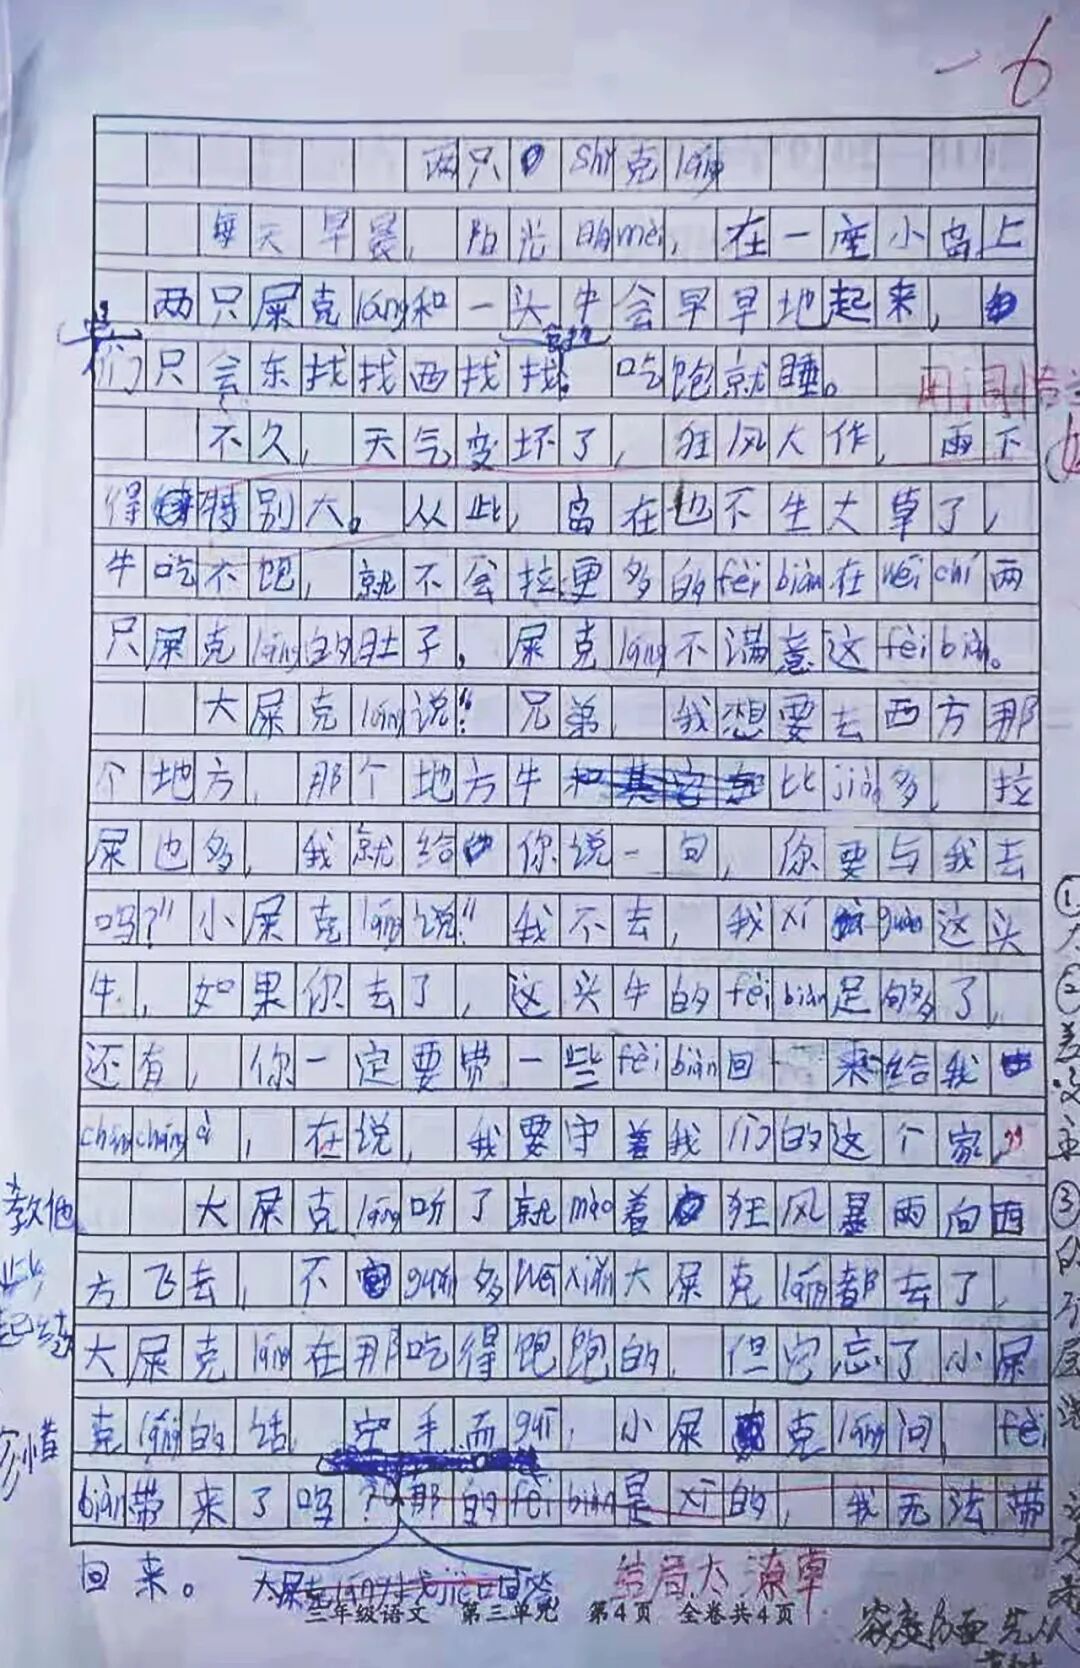 -6
两只shǐ克láng
每天早晨，阳光明mèi，在一座小岛上
两只屎克láng和一头牛会早早地起来，
们只会东找找西找找。吃饱就睡。
用词恰当
不久，天气变坏了，狂风大作，雨下
得特别大。从此，岛在也不生大草了，
牛吃不饱，就不会拉更多的fèi biàn在wéi chí两
只屎克láng的肚子，屎克láng不满意这fèi biàn。
大屎克láng说："兄弟，我想要去西方那
个地方，那个地方牛比jiǎo多，拉
屎也多，我就给你说一句，你要与我去
吗？"小屎克láng说"我不去，我xí guàn这头
牛，如果你去了，这头牛的fèi biàn足够多了，
还有，你一定要带一些fèi biàn回来给我
cháng cháng，在说，我要守着我们的这个家，"
大屎克láng听了就mào着狂风暴雨向西
方飞去，不guǎn多wēi xiǎn大屎克láng都去了，
大屎克láng在那吃得饱饱的，但它忘了小屎
克láng的话，空手而guī，小屎克láng问，fèi
biàn带来了吗？那的fèi biàn是xī的，我无法带
回来。
结局太潦草
三年级语文 第三单元 第4页 全卷共4页